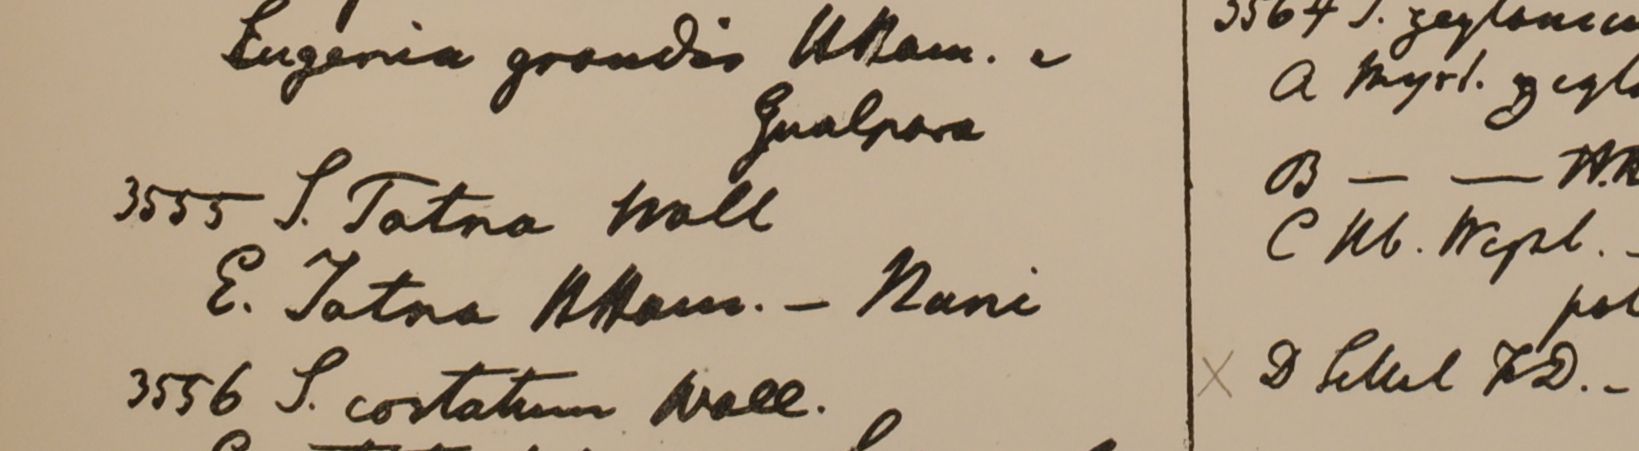 Eugenia grandis HHam. e
Gualpara
3555 S. Tatna Wall
E. Tatna HHam. — Nani
3556 S. costatum Wall.
3564 S. zeylanicu
A Myrt. zeyla
B — — H.
C Hb. Wight. -
D HD. -